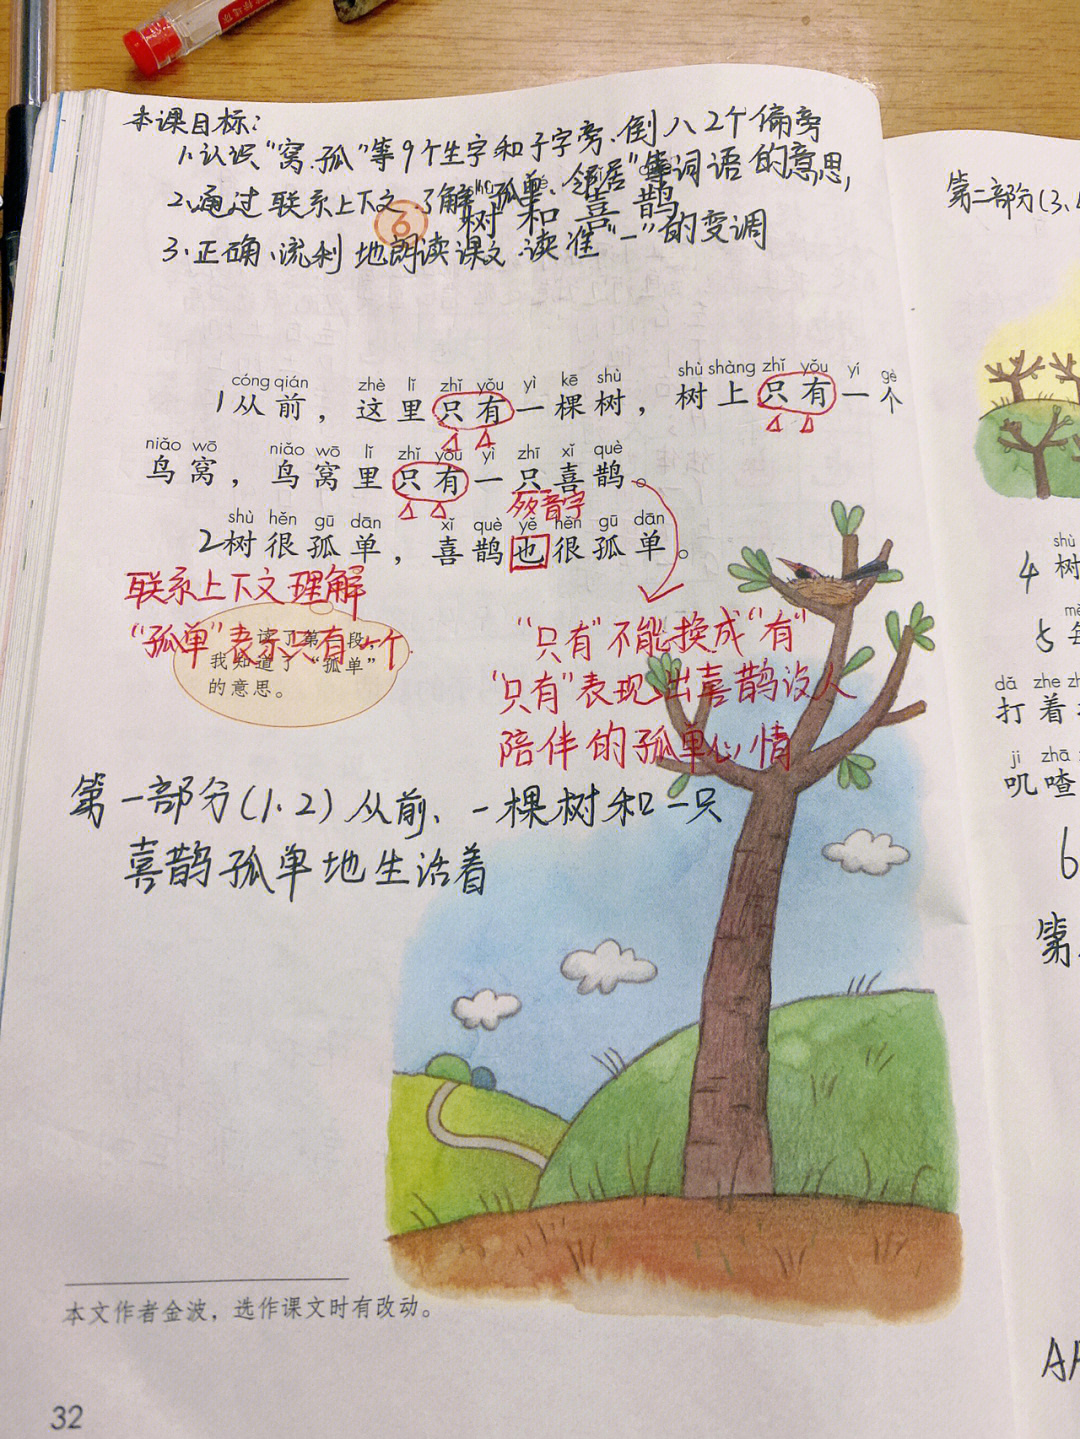 本课目标:
1.认识“窝、孤”等9个生字和子字旁、倒八2个偏旁
2.通过联系上下文.了解“孤单、邻居”等词语的意思,
6 树和喜鹊
3.正确、流利地朗读课文.读准“一”的变调
cóng qián zhè lǐ zhǐ yǒu yì kē shù shù shàng zhǐ yǒu yí gè
1从前，这里只有一棵树，树上只有一个
niǎo wō niǎo wō lǐ zhǐ yǒu yì zhī xǐ què
鸟窝，鸟窝里只有一只喜鹊。
多音字
shù hěn gū dān xǐ què yě hěn gū dān
2树很孤单，喜鹊也很孤单。
联系上下文理解
“孤单”表示只有一个.
读了第一段，
我知道了“孤单”
的意思。
“只有”不能换成“有”
“只有”表现出喜鹊没人
陪伴的孤单心情
第一部分(1、2)从前、一棵树和一只
喜鹊孤单地生活着
本文作者金波，选作课文时有改动。
32
第二部分(3、
shù
4树
5
dǎ zhe
打着
jī zhā
叽喳
6
第